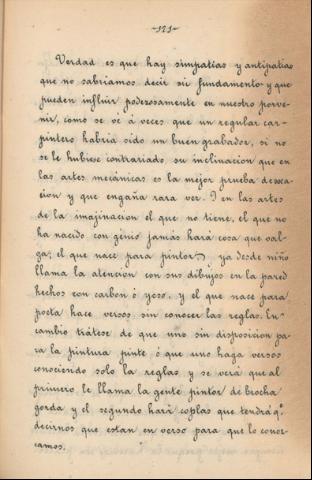 -121-
Verdad es que hay simpatías y antipatías
que no sabríamos decir su fundamento y que
pueden influir poderosamente en nuestro porve-
nir, como se vé á veces que un regular car-
pintero habría sido un buen grabador, si no
se le hubiese contrariado su inclinacion que en
las artes mecánicas es la mejor prueba de voca-
cion y que engaña rara vez. Y en las artes
de la imajinacion el que no tiene, el que no
ha nacido con génio jamás hará cosa que val-
ga; el que nace para pintor, ya desde niño
llama la atencion con sus dibujos en la pared
hechos con carbon ó yeso, y el que nace para
poeta hace versos sin conocer las reglas. En
cambio trátese de que uno sin disposicion pa-
ra la pintura pinte ó que uno haga versos
conociendo solo la reglas y se verá que al
primero le llama la gente pintor de brocha
gorda y el segundo hará coplas que tendrá q.e
decirnos que están en verso para que lo conoz-
camos.